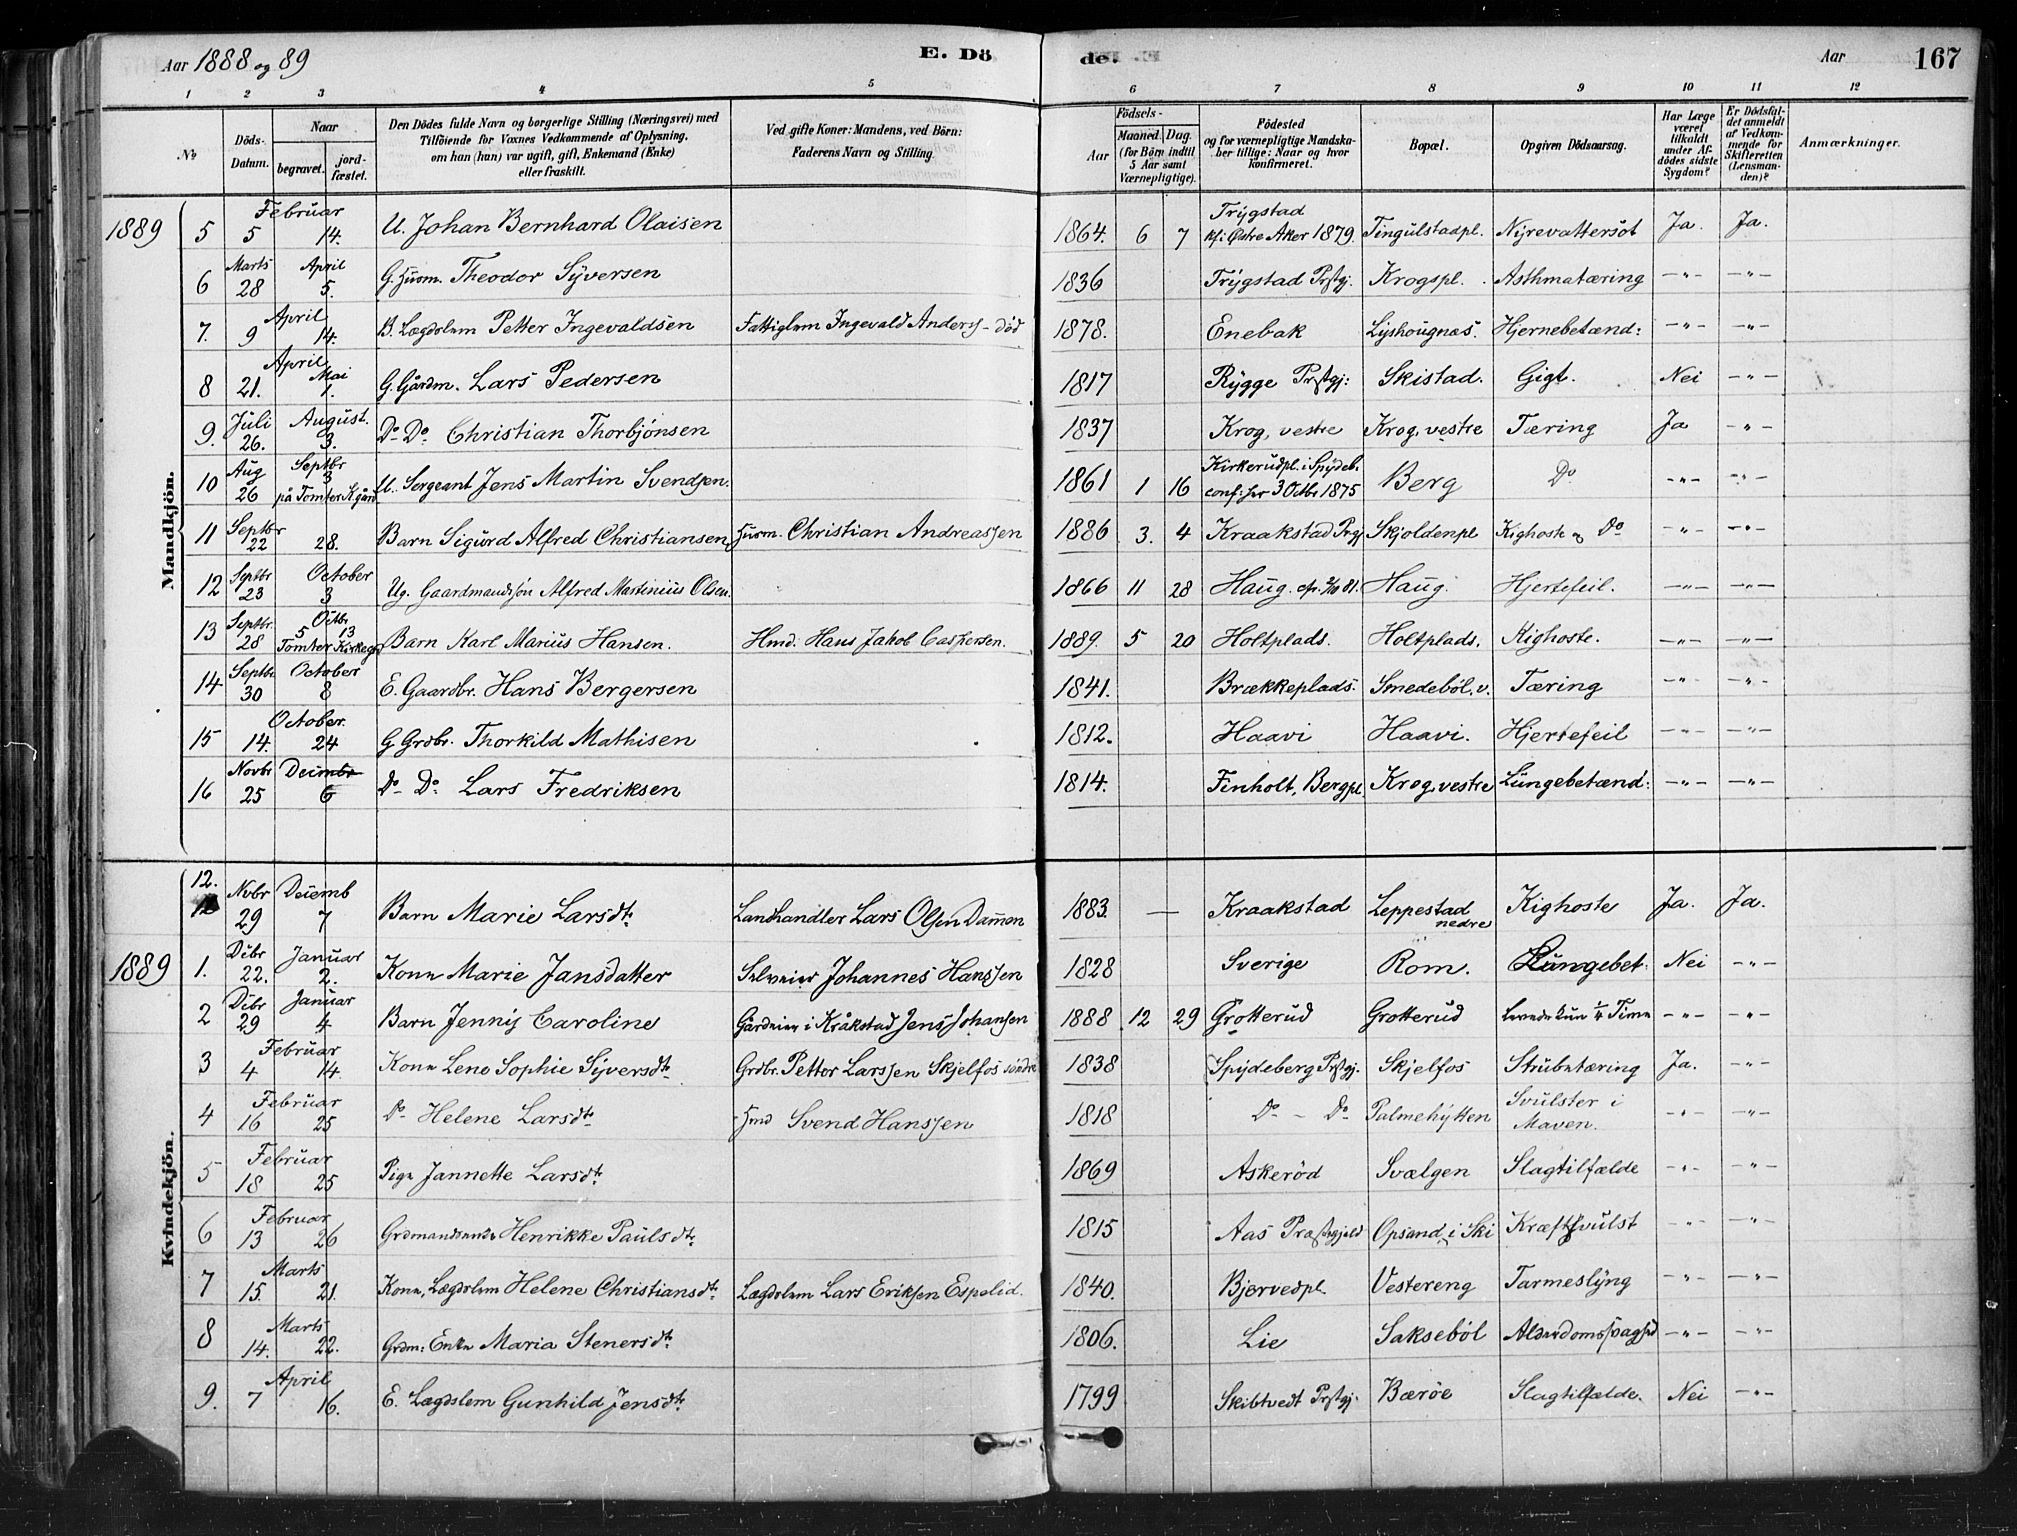 Aar 1888 og 89 E. Dö
de. Aar 167
1 2 3 4 5 6 7 8 9 10 11 12
No Döds-Datum. Naar begravet. jordfæstet. Den Dödes fulde Navn og borgerlige Stilling (Næringsvei) med Tilföiende for Voxnes Vedkommende af Oplysning, om han (hun) var ugift, gift, Enkemand (Enke) eller fraskilt. Ved gifte Koner: Mandens, ved Börn: Faderens Navn og Stilling. Aar Födsels- Maaned Dag. (for Börn indtil 5 Aar samt Værnepligtige). Födested og for værnepligtige Mandskaber tillige: Naar og hvor konfirmeret. Bopæl. Opgiven Dödsaarsag. Har Læge været tilkaldt under Afdödes sidste Sygdom? Er Dödsfaldet anmeldt af Vedkommende for Skifteretten (Lensmanden)? Anmærkninger.
Mandkjön.
1889 5 Februar 5 14. U. Johan Bernhard Olaisen 1864. 6 7 Trygstad kf: Østre Aker 1879. Tingulstadpl. Nyrevattersot Ja. Ja.
6 Marts 28 April 5. G. Husm. Theodor Syversen 1836 Trygstad Prstgj. Krogspl. Asthmatæring -"- -"-
7. April 9 14. B. Lægdslem Petter Ingevaldsen Fattiglem Ingevald Anderss- död 1878. Enebak Lyshougnæs. Hjernebetænd: -"- -"-
8 April 21. Mai 1. G. Gårdm. Lars Pedersen 1817 Rygge Prstgj: Skistad. Gigt. Nei -"-
9. Juli 26. August. 3. Do Do Christian Thorbjönsen 1837 Krog, vestre Krog, vestre Tæring Ja -"-
10 Aug 26 Septbr 3 på Tomter K.gård U. Sergeant Jens Martin Svendsen. 1861 1 16 Kirkerudpl. i Spydeb. conf: her 3 Octbr 1875 Berg Do -"- -"-
11 Septbr 22 28. Barn Sigurd Alfred Christiansen Husm. Christian Andreassen 1886 3. 4 Kraakstad Prgj Skjoldenpl Kighoste og Do -"- -"-
12 Septbr 23 October 3 Ug. Gaardmandssön Alfred Martinius Olsen. 1866 11 28 Haug. Haug. Hjertefeil. -"- -"-
13 Septbr. 28 Octbr 5 13 Tomter Kirkeg. Barn Karl Marius Hansen. Hmd. Hans Jakob Caspersen. 1889. 5 20 Holtplads. Holtplads. Kighoste. -"- -"-
14 Septbr. 30 October 8 E. Gaardbr. Hans Bergersen 1841. Brækkeplads. Smedeböl, v. Tæring -"- -"-
15 October. 14. 24 G Grdbr. Thorkild Mathisen 1812. Haavi Haavi. Hjertefeil -"- -"-
16 Novbr 25 Decembr 6 Do Do Lars Fredriksen 1814. Finholt, Bergpl. Krog, vestre Lungebetænd: -"- -"-
Kvindekjön.
12. Novbr 29 Decemb 7 Barn Marie Larsdtr. Landhandler Lars Olsen Dammen 1883. — Kraakstad Leppestad nedre Kighoste Ja. Ja.
1889 1. Dcbr 22. Januar 2. Kone Marie Jansdatter Selveier Johannes Hanssen 1828 Sverige Rom. Lungebet: Nei -"-
2 Dcbr 29 Januar 4 Barn Jenny Caroline Gårdeier i Kråkstad Jens Johansen 1888 12 29 Grotterud Grotterud Levede kun 1/4 Time -"- -"-
3 Februar 4 14. Kone Lene Sophie Syversdtr Grdbr. Petter Larssen Skjelfos söndre 1838 Spydeberg Prstgj. Skjelfos Strubetæring Ja. -"-
4 Februar 16 25 Do Helene Larsdtr Hmd Svend Hanssen 1818 Do - Do Palmehytten Svulster i Maven. -"- -"-
5 Februar 18 25 Pige Jannette Larsdtr. 1869 Askeröd Svælgen Slagtilfælde -"- -"-
6 Februar 13 26 Grdmandsenke Henrikke Paulsdtr. 1815 Aas Præstegjeld Opsand, i Ski Kræftsvulst -"- -"-
7 Marts 15. 21. Kone, Lægdslem Helene Christiansdtr. Lægdslem Lars Eriksen Espelid. 1840. Bjervedpl. Vestereng Tarmeslyng -"- -"-
8 Marts 14. 22. Grdm: Enke Maria Stenersdtr. 1806. Lie Sakseböl Alderdomssvaghed -"- -"-
9. April 7 16. E. Lægdslem Gunhild Jensdtr. 1799 Skibtvedt Prstgj. Bæröe Slagtilfælde. Nei -"-